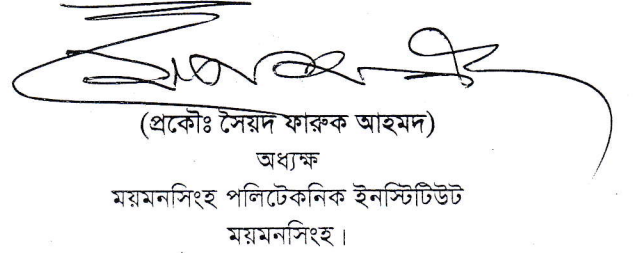 (প্রকৌঃ সৈয়দ ফারুক আহমদ)
অধ্যক্ষ
ময়মনসিংহ পলিটেকনিক ইনস্টিটিউট
ময়মনসিংহ।